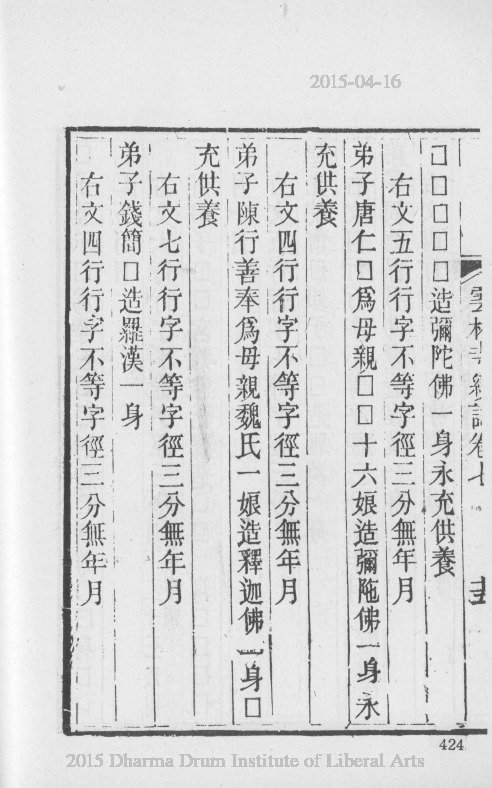 2015-04-16
雲林寺續誌卷七
□□□□□造彌陀佛一身永充供養
右文五行行字不等字徑三分無年月
弟子唐仁□爲母親□□十六娘造彌陁佛一身永
充供養
右文四行行字不等字徑三分無年月
弟子陳行善奉爲母親魏氏一娘造釋迦佛一身□
充供養
右文七行行字不等字徑三分無年月
弟子錢簡□造羅漢一身
右文四行行字不等字徑三分無年月
424
2015 Dharma Drum Institute of Liberal Arts